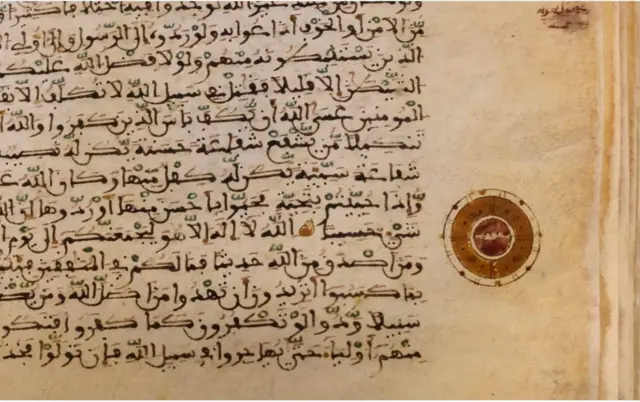 غير الله لوجدوا فيه اختلافا كثيرا
من الامن أو الخوف أذاعوا به ولو ردوه إلى الرسول وإلى أولي
الذين يستنبطونه منهم ولولا فضل الله عليكم
الشيطن إلا قليلا فقتل في سبيل الله لا تكلف إلا
المومنين عسى الله أن يكف بأس الذين كفروا والله
تنكيلا من يشفع شفاعة حسنة يكن له نصيب
شفاعة سيئة يكن له كفل منها وكان الله
وإذا حييتم بتحية فحيوا بأحسن منها أو ردوها إن
شيء حسيبا الله لا إله إلا هو ليجمعنكم إلى يوم
ومن أصدق من الله حديثا فما لكم في المنفقين
بما كسبوا أتريدون أن تهدوا من أضل الله ومن
سبيلا ودوا لو تكفرون كما كفروا فتكو
منهم أولياء حتى يهاجروا في سبيل الله فإن تولوا فخذ